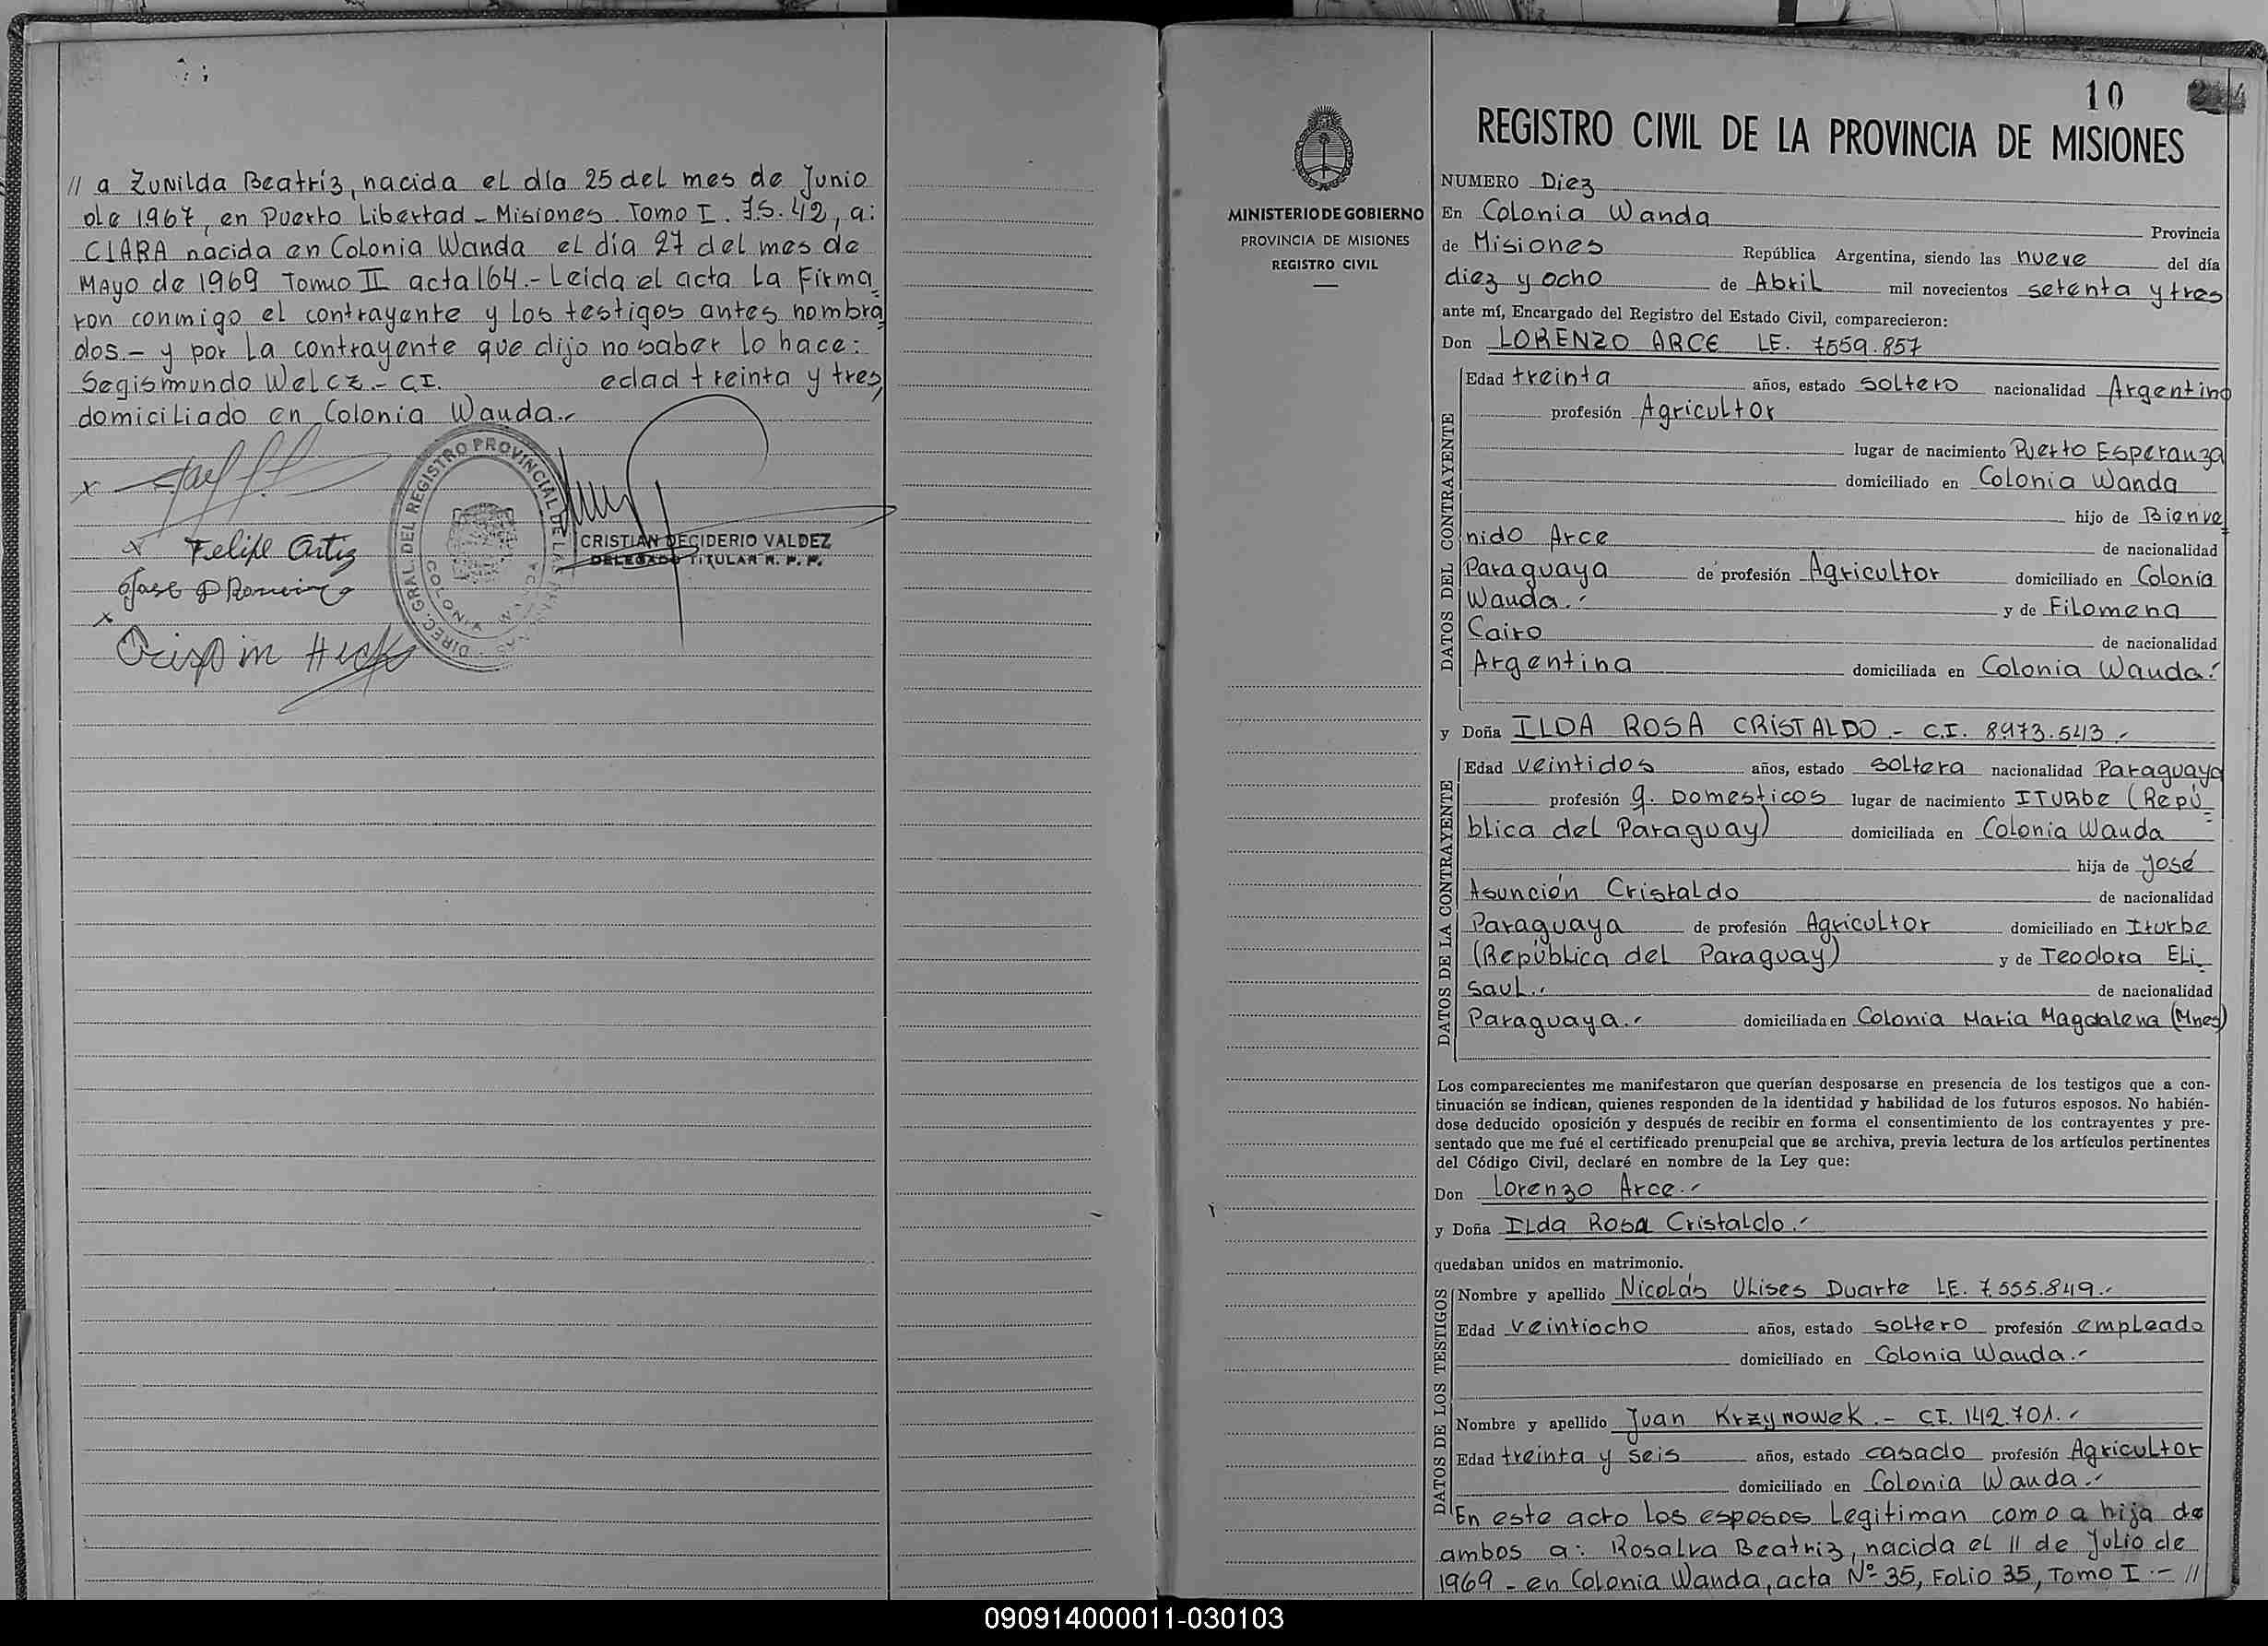 // a Zunilda Beatríz, nacida el día 25 del mes de Junio
de 1967, en Puerto Libertad - Misiones. Tomo I. 42, a:
CLARA nacida en Colonia Wanda el día 27 del mes de
Mayo de 1969 Tomo II acta 164.- Leida el acta la Firma
ron conmigo el contrayente y los testigos antes nombra
dos - y por la contrayente que dijo no saber lo hace:
Segismundo Welcz - C.I. edad treinta y tres,
domiciliado en Colonia Wanda.-
x
x Felipe Ortiz
x
Crispin
DIREC. GRAL. DEL REGISTRO PROVINCIAL DE LAS
COLONIA WANDA
CRISTIAN DECIDERIO VALDEZ
DELEGADO TITULAR R. P. P.
10
REGISTRO CIVIL DE LA PROVINCIA DE MISIONES
MINISTERIO DE GOBIERNO
PROVINCIA DE MISIONES
REGISTRO CIVIL
NUMERO Diez
En Colonia Wanda Provincia
de Misiones República Argentina, siendo las nueve del día
diez y ocho de Abril mil novecientos setenta y tres
ante mí, Encargado del Registro del Estado Civil, comparecieron:
Don LORENZO ARCE LE. 7559.857
DATOS DEL CONTRAYENTE
Edad treinta años, estado soltero nacionalidad Argentino
profesión Agricultor
lugar de nacimiento Puerto Esperanza
domiciliado en Colonia Wanda
hijo de Bienve
nido Arce de nacionalidad
Paraguaya de profesión Agricultor domiciliado en Colonia
Wanda.- y de Filomena
Cairo de nacionalidad
Argentina domiciliada en Colonia Wanda.-
y Doña ILDA ROSA CRISTALDO.- C.I. 8973.543.-
DATOS DE LA CONTRAYENTE
Edad veintidos años, estado soltera nacionalidad Paraguaya
profesión q. Domesticos lugar de nacimiento ITURbe (Repú
blica del Paraguay) domiciliada en Colonia Wanda
hija de José
Asunción Cristaldo de nacionalidad
Paraguaya de profesión Agricultor domiciliado en Iturbe
(República del Paraguay) y de Teodora Eli
saul.- de nacionalidad
Paraguaya.- domiciliada en Colonia Maria Magdalena (Mnes)
Los comparecientes me manifestaron que querían desposarse en presencia de los testigos que a con-
tinuación se indican, quienes responden de la identidad y habilidad de los futuros esposos. No habién-
dose deducido oposición y después de recibir en forma el consentimiento de los contrayentes y pre-
sentado que me fué el certificado prenupcial que se archiva, previa lectura de los artículos pertinentes
del Código Civil, declaré en nombre de la Ley que:
Don Lorenzo Arce.-
y Doña Ilda Rosa Cristaldo.-
quedaban unidos en matrimonio.
DATOS DE LOS TESTIGOS
Nombre y apellido Nicolás Ulises Duarte LE. 7.555.849.-
Edad veintiocho años, estado soltero profesión empleado
domiciliado en Colonia Wanda.-
Nombre y apellido Juan Krzynowek.- CI. 142.701.-
Edad treinta y seis años, estado casado profesión Agricultor
domiciliado en Colonia Wanda.-
En este acto los esposos Legitiman como a hija de
ambos a: Rosalva Beatriz, nacida el 11 de Julio de
1969 - en Colonia Wanda, acta Nº 35, Folio 35, Tomo I.- //
090914000011-030103